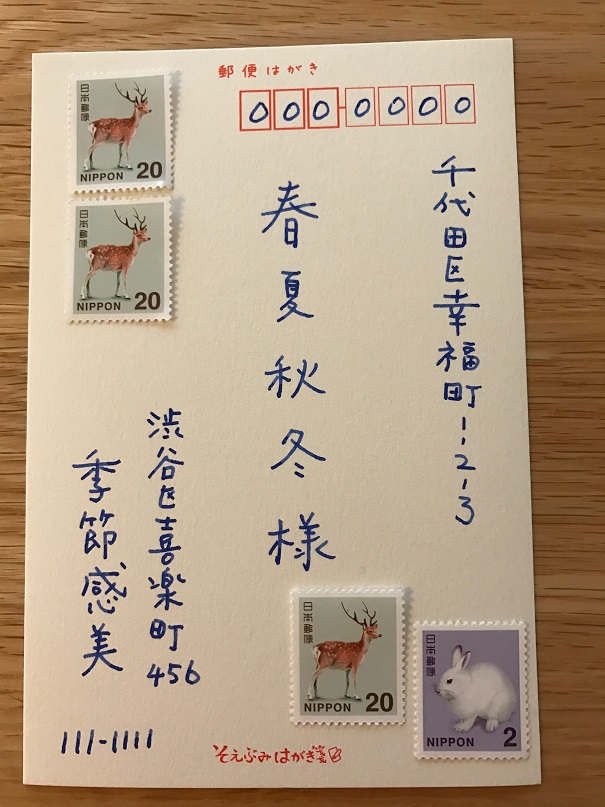 郵便はがき
000-0000
千代田区幸福町1-2-3
春夏秋冬様
渋谷区喜楽町456
季節感美
111-1111
日本郵便
NIPPON 20
日本郵便
NIPPON 20
日本郵便
NIPPON 20
日本郵便
NIPPON 2
そえぶみはがき